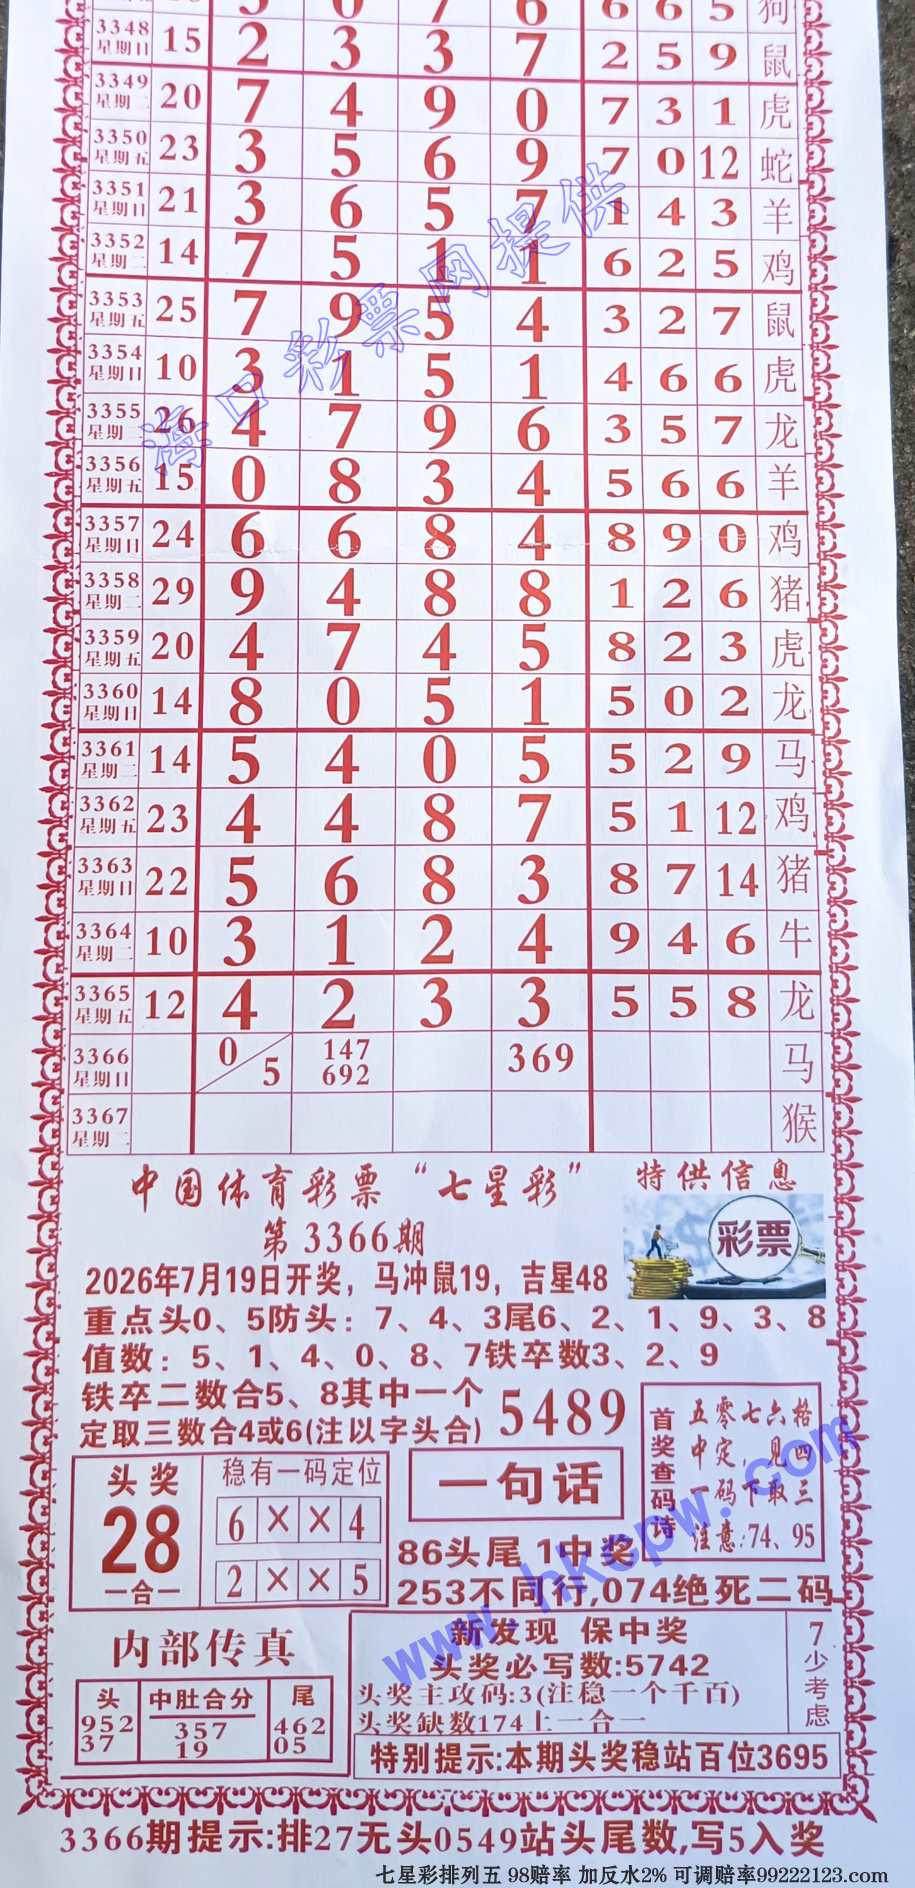 3348 星期日 15 2 3 3 7 2 5 9 鼠
3349 星期二 20 7 4 9 0 7 3 1 虎
3350 星期五 23 3 5 6 9 7 0 12 蛇
3351 星期日 21 3 6 5 7 1 4 3 羊
3352 星期二 14 7 5 1 1 6 2 5 鸡
3353 星期五 25 7 9 5 4 3 2 7 鼠
3354 星期日 10 3 1 5 1 4 6 6 虎
3355 星期二 26 4 7 9 6 3 5 7 龙
3356 星期五 15 0 8 3 4 5 6 6 羊
3357 星期日 24 6 6 8 4 8 9 0 鸡
3358 星期二 29 9 4 8 8 1 2 6 猪
3359 星期五 20 4 7 4 5 8 2 3 虎
3360 星期日 14 8 0 5 1 5 0 2 龙
3361 星期二 14 5 4 0 5 5 2 9 马
3362 星期五 23 4 4 8 7 5 1 12 鸡
3363 星期日 22 5 6 8 3 8 7 14 猪
3364 星期二 10 3 1 2 4 9 4 6 牛
3365 星期五 12 4 2 3 3 5 5 8 龙
3366 星期日 0 5 147 692 369 马
3367 星期二 猴
海口彩票网提供
中国体育彩票“七星彩” 特供信息
第3366期
彩票
2026年7月19日开奖，马冲鼠19，吉星48
重点头0、5防头：7、4、3尾6、2、1、9、3、8
值数：5、1、4、0、8、7铁卒数3、2、9
铁卒二数合5、8其中一个
定取三数合4或6(注以字头合)
5489
首奖查码诗
五零七六格
中定，见四
一码下取三
注意:74、95
头奖
28
一合一
稳有一码定位
6 × × 4
2 × × 5
一句话
86头尾 1中奖
253不同行,074绝死二码
www.hkcpw.com
内部传真
头 中肚合分 尾
952 357 462
37 19 05
新发现 保中奖
头奖必写数:5742
头奖主攻码:3(注稳一个千百)
头奖缺数174上一合一
7少考虑
特别提示:本期头奖稳站百位3695
3366期提示:排27无头0549站头尾数,写5入奖
七星彩排列五 98赔率 加反水2% 可调赔率99222123.com